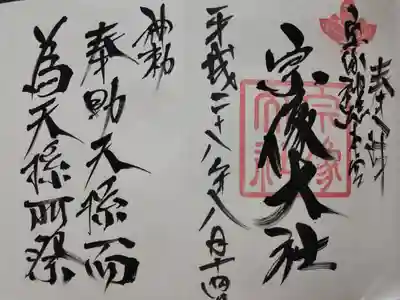 奉拝
宗像大社
平成二十八年八月十四日
神勅
奉助天孫而
為天孫所祭